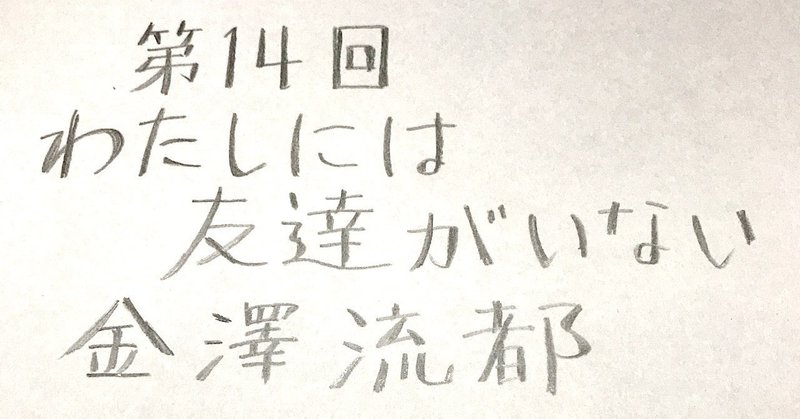 第14回
わたしには
友達がいない
金澤流都